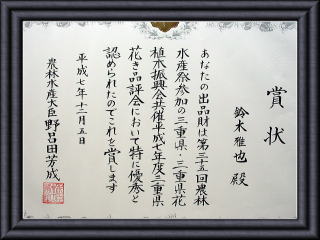 賞状
鈴木雅也殿
あなたの出品財は第三十五回農林
水産祭参加の三重県・三重県花
植木振興会共催平成七年度三重県
花き品評会において特に優秀と
認められたのでこれを賞します
平成七年十二月五日
農林水産大臣野呂田芳成